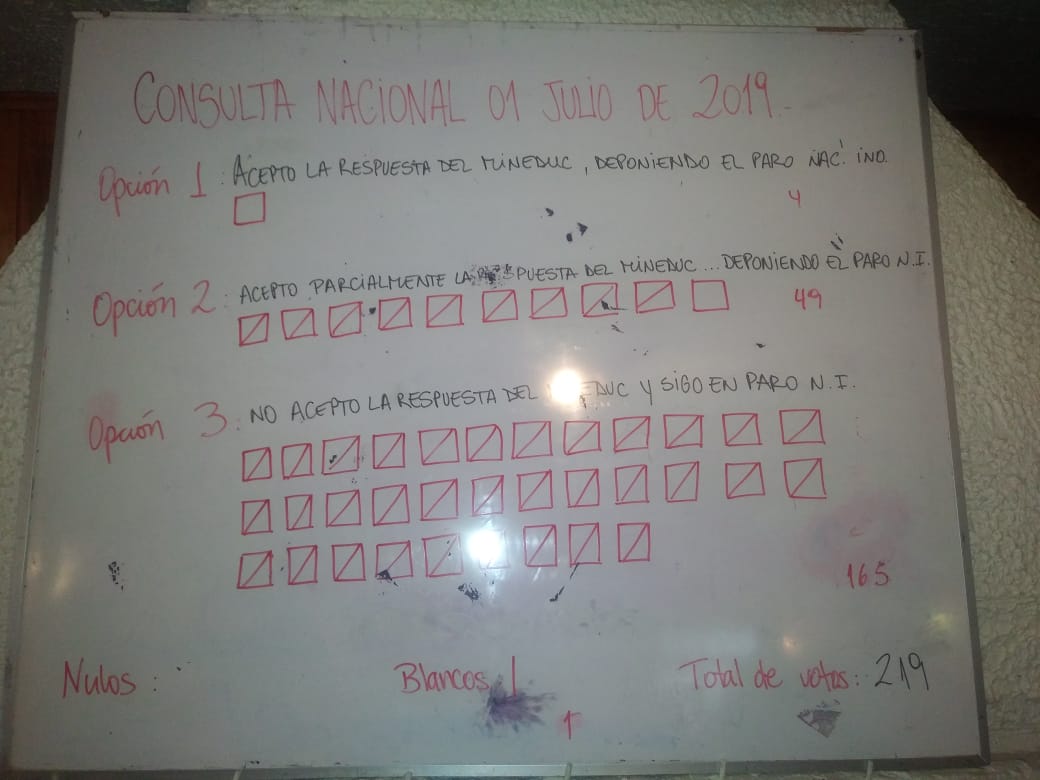 CONSULTA NACIONAL 01 JULIO DE 2019.-
Opción 1: ACEPTO LA RESPUESTA DEL MINEDUC, DEPONIENDO EL PARO NAC. IND.
4
Opción 2: ACEPTO PARCIALMENTE LA RESPUESTA DEL MINEDUC... DEPONIENDO EL PARO N.I.
49
Opción 3: NO ACEPTO LA RESPUESTA DEL EDUC Y SIGO EN PARO N.I.
165
Nulos: Blancos: | Total de votos: 219
1